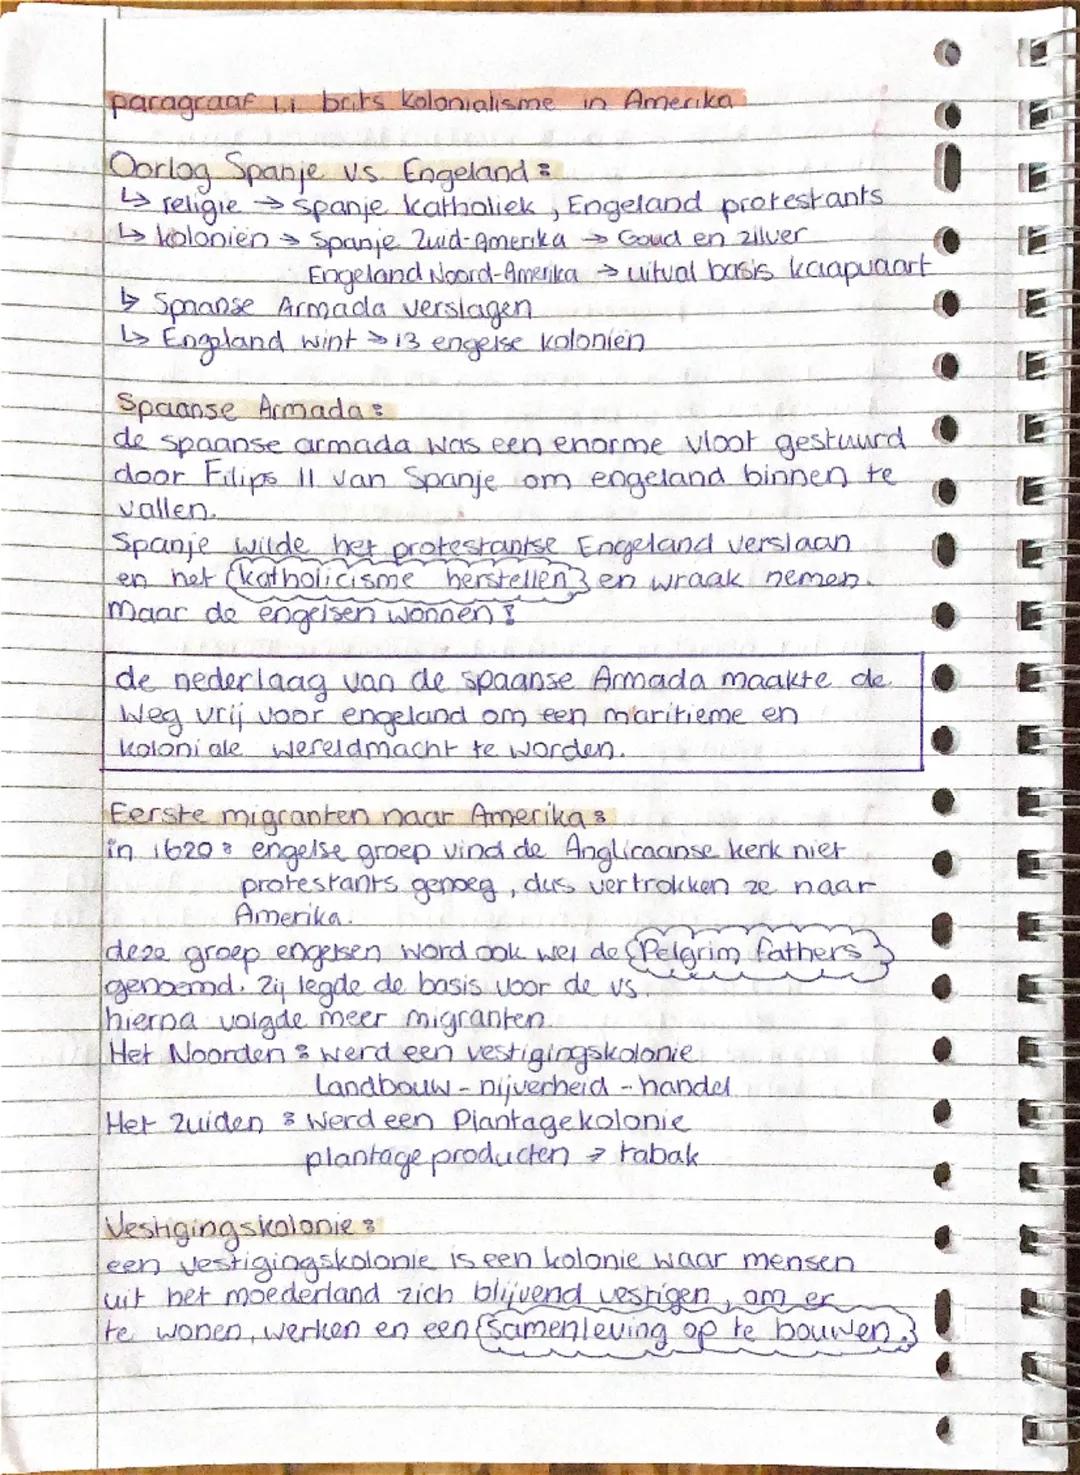 paragraaf 1.1 brits kolonialisme in Amerika
Oorlog Spanje vs. Engeland:
↳ religie → Spanje katholiek, Engeland protestants
↳ koloniën → Spanje Zuid-Amerika → Goud en zilver
Engeland Noord-Amerika → uitval basis kaapvaart
↳ Spaanse Armada verslagen
↳ Engeland wint → 13 engelse koloniën
Spaanse Armada:
de spaanse armada was een enorme vloot gestuurd
door Filips II van Spanje om engeland binnen te
vallen.
Spanje wilde het protestantse Engeland verslaan
en het katholicisme herstellen en wraak nemen.
Maar de engelsen wonnen!
de nederlaag van de spaanse Armada maakte de
weg vrij voor engeland om een maritieme en
koloniale wereldmacht te worden.
Eerste migranten naar Amerika:
in 1620: engelse groep vind de Anglicaanse kerk niet
protestants genoeg, dus vertrokken ze naar
Amerika.
deze groep engelsen word ook wel de Pelgrim fathers
genoemd. Zij legde de basis voor de vs.
hierna volgde meer migranten.
Het Noorden: werd een vestigingskolonie
Landbouw - nijverheid - handel
Het Zuiden: Werd een Plantagekolonie
plantageproducten → tabak
Vestigingskolonie:
een vestigingskolonie is een kolonie waar mensen
uit het moederland zich blijvend vestigen, om er
te wonen, werken en een samenleving op te bouwen.